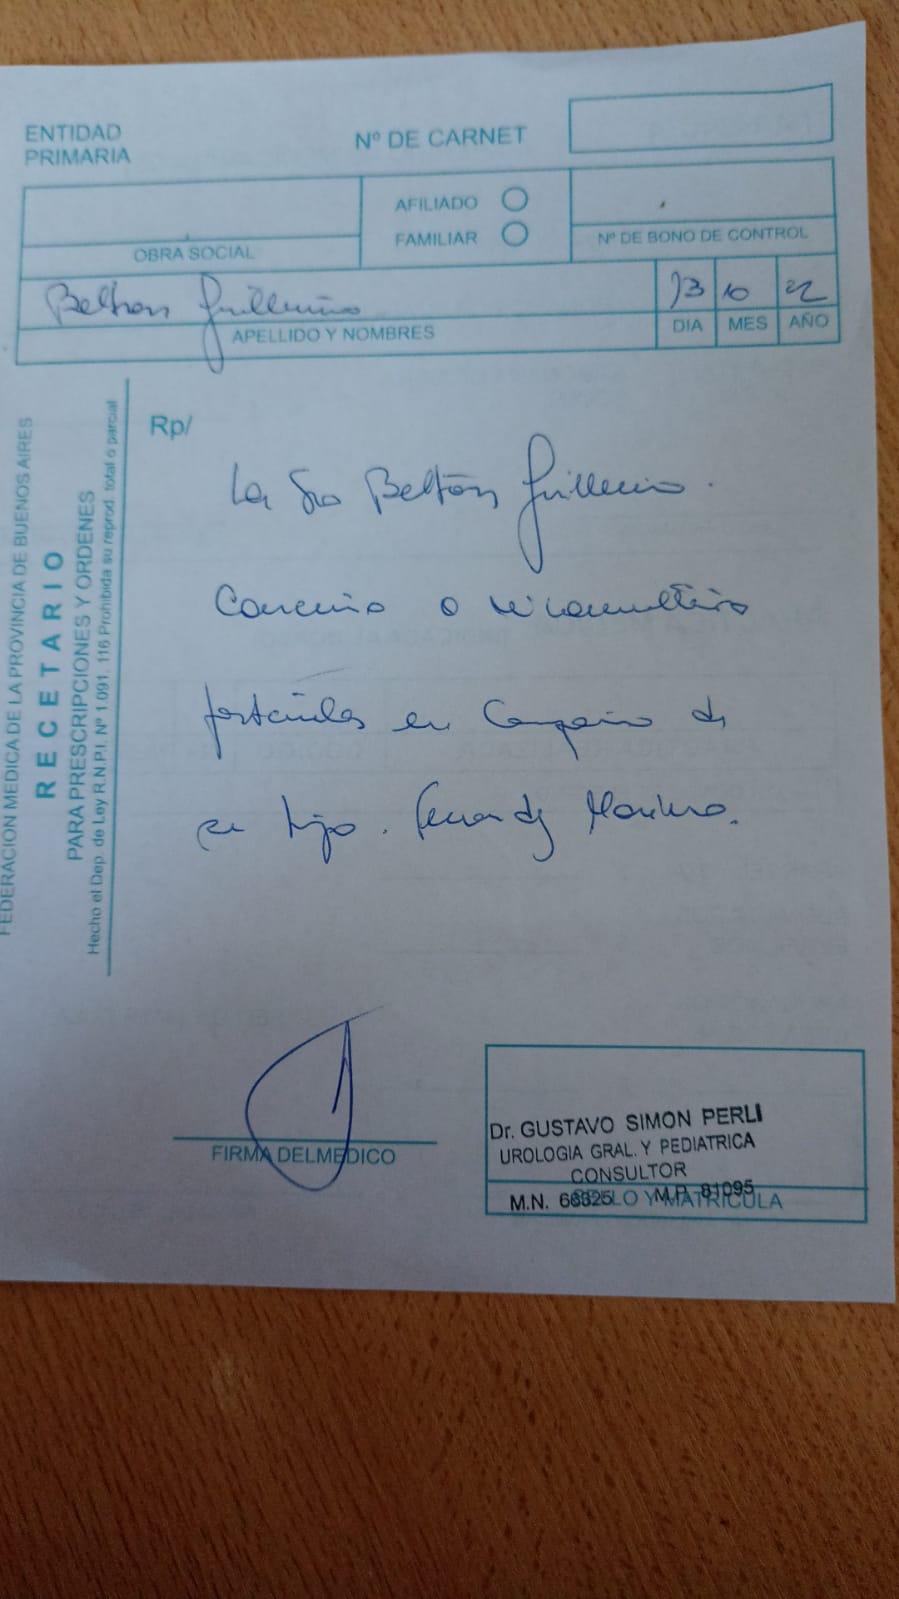 ENTIDAD
PRIMARIA
Nº DE CARNET
AFILIADO
FAMILIAR
OBRA SOCIAL
Nº DE BONO DE CONTROL
Beltran Guillermina
13 10 22
APELLIDO Y NOMBRES
DIA MES AÑO
FEDERACION MEDICA DE LA PROVINCIA DE BUENOS AIRES
RECETARIO
PARA PRESCRIPCIONES Y ORDENES
Hecho el Dep. de Ley R.N.P.I. Nº 1.091.116 Prohibida su reprod. total o parcial
Rp/
La Sra Beltran Guillermina.
Concurrio a
en Compañia de
su hijo.
FIRMA DEL MEDICO
Dr. GUSTAVO SIMON PERLI
UROLOGIA GRAL. Y PEDIATRICA
CONSULTOR
M.N. 66325 M.P. 81095
SELLO Y MATRICULA